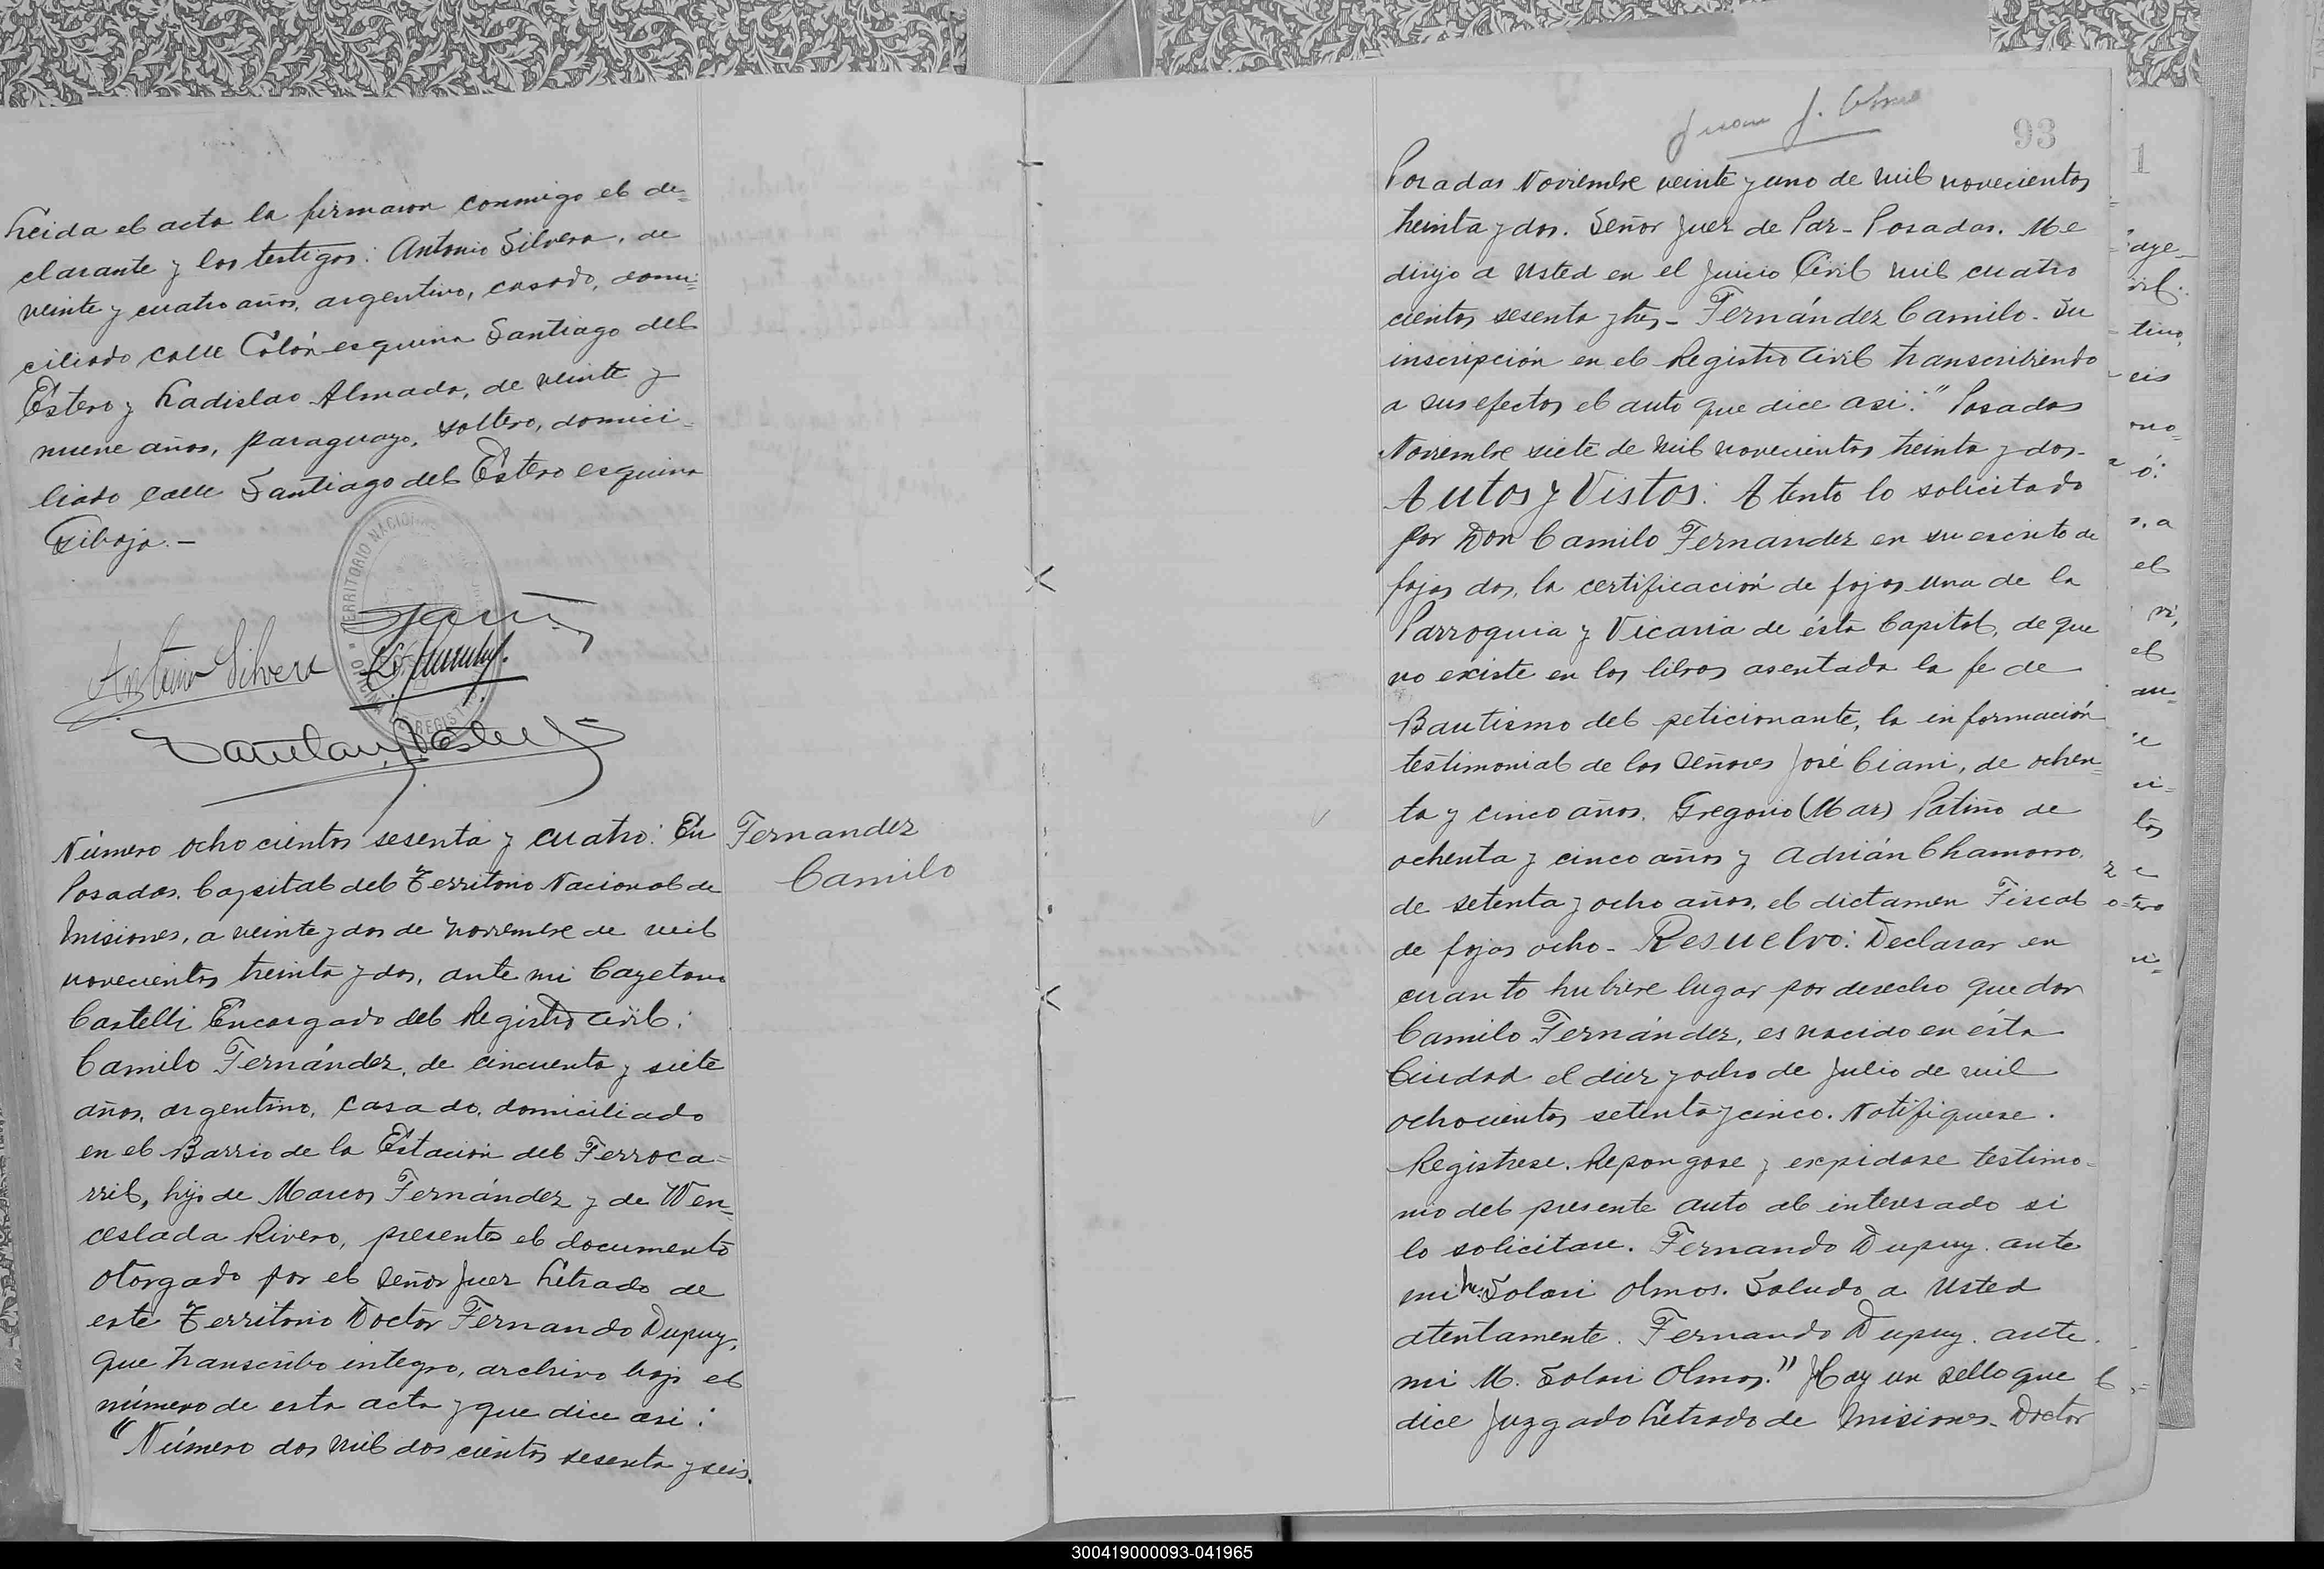 Leida el acta la firmaron conmigo el de=
clarante y los testigos: Antonio Silvera, de
veinte y cuatro años, argentino, casado, domi=
ciliado calle Colón esquina Santiago del
Estero y Ladislao Almada, de veinte y
nueve años, paraguayo, soltero, domici-
liado calle Santiago del Estero esquina
Antonio Silvera
TERRITORIO NACIONAL
REGIST
Número ochocientos sesenta y cuatro: En
Posadas. Capital del Territorio Nacional de
Misiones, a veinte y dos de Noviembre de mil
novecientos treinta y dos, ante mi Cayetano
Castelli Encargado del Registro Civil:
Camilo Fernández, de cincuenta y siete
años, argentino, casado, domiciliado
en el Barrio de la Estación del Ferroca=
rril, hijo de Marcos Fernández y de Wen=
ceslada Rivero, presenta el documento
otorgado por el Señor Juez Letrado de
este Territorio Doctor Fernando Dupuy,
que transcribo integro, archivo bajo el
número de esta acta y que dice asi:
"Número dos mil dos cientos sesenta y seis.
Fernandez
Camilo
Juan J.
93
Posadas Noviembre veinte y uno de mil novecientos
treinta y dos. Señor Juez de Paz - Posadas. Me
dirijo a Usted en el Juicio Civil mil cuatro
cientos sesenta y tres - Fernández Camilo - Su
inscripción en el Registro Civil transcribiendo
a sus efectos el auto que dice asi: "Posadas
Noviembre siete de mil novecientos treinta y dos -
Autos y Vistos: Atento lo solicitado
por Don Camilo Fernandez en su escrito de
fojas dos, la certificación de fojas una de la
Parroquia y Vicaria de ésta Capital, de que
no existe en los libros asentada la fe de
Bautismo del peticionante, la información
testimonial de los Señores José Ciani, de ochen=
ta y cinco años, Gregorio (Mar) Patiño de
ochenta y cinco años y Adrián Chamorro,
de setenta y ocho años, el dictamen Fiscal
de fojas ocho - Resuelvo: Declarar en
cuanto hubiere lugar por derecho que don
Camilo Fernández, es nacido en ésta
Ciudad el diez y ocho de Julio de mil
ochocientos setenta y cinco. Notifiquese.
Registrese. Repongase y expidase testimo-
nio del presente auto al interesado si
lo solicitare. Fernando Dupuy. ante
mi M. Solari Olmos. Saludo a Usted
atentamente. Fernando Dupuy. ante
mi M. Solari Olmos." Hay un sello que
dice Juzgado Letrado de Misiones - Doctor
300419000093-041965